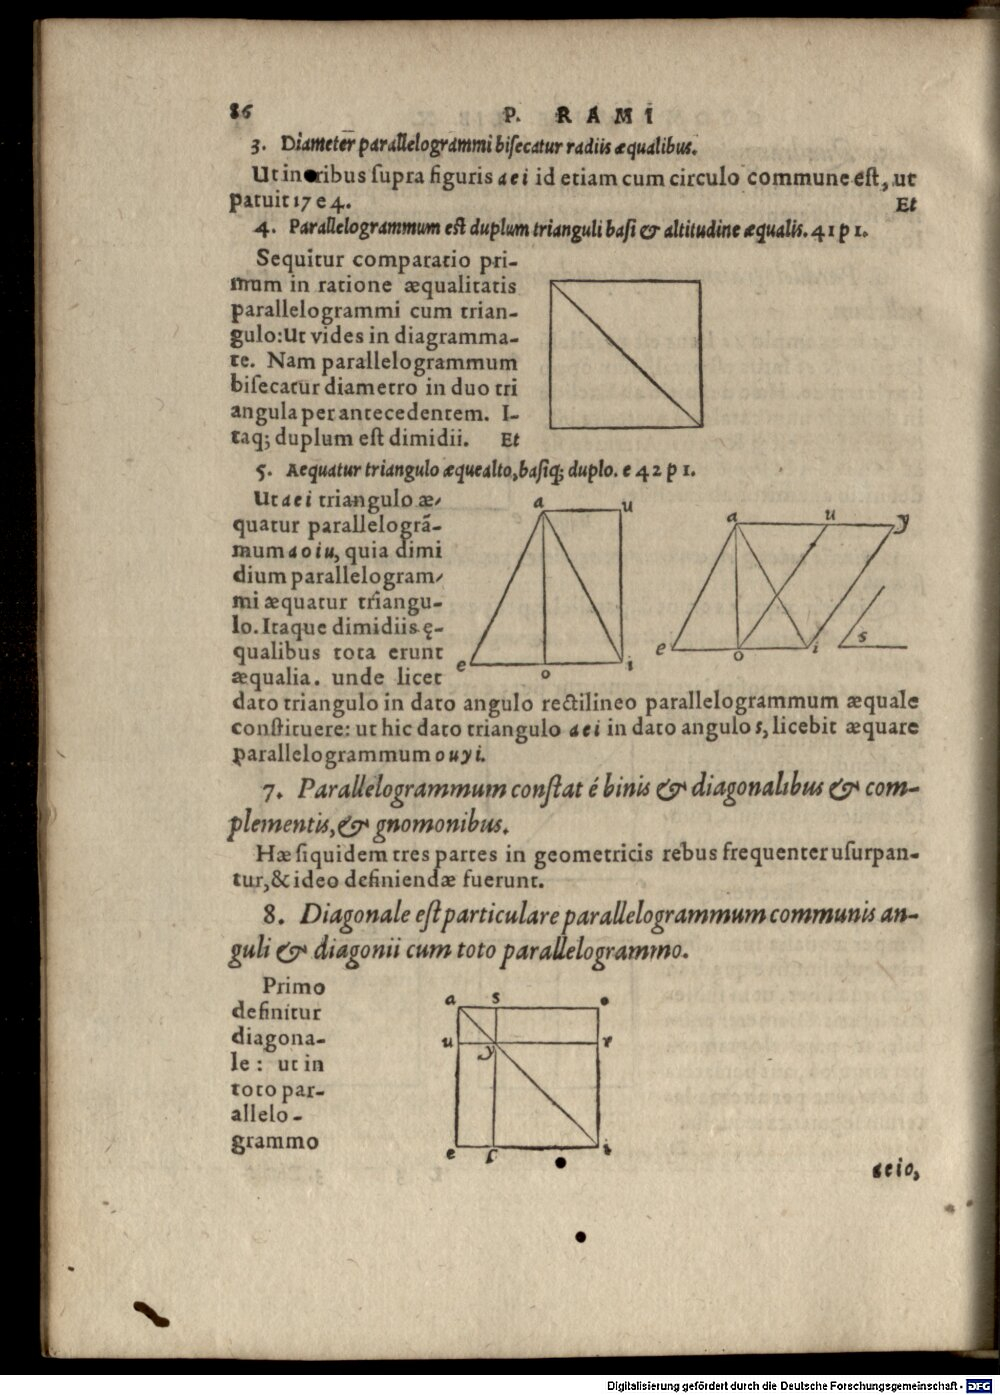 86 P. RAMI
3. Diameter parallelogrammi bisecatur radiis æqualibus.
Ut in oribus supra figuris aei id etiam cum circulo commune est, ut
patuit 17 e 4. Et
4. Parallelogrammum est duplum trianguli basi & altitudine æqualis. 41 p 1.
Sequitur comparatio pri-
mum in ratione æqualitatis
parallelogrammi cum trian-
gulo: Ut vides in diagramma-
te. Nam parallelogrammum
bisecatur diametro in duo tri
angula per antecedentem. I-
taq; duplum est dimidii. Et
5. Aequatur triangulo æquealto, basiq; duplo. e 42 p 1.
Ut aei triangulo æ-
quatur parallelogrã-
mum aoiu, quia dimi
dium parallelogram-
mi æquatur triangu-
lo. Itaque dimidiis ę-
qualibus tota erunt
æqualia. unde licet
a u
e o i
a u y
e o i s
dato triangulo in dato angulo rectilineo parallelogrammum æquale
constituere: ut hic dato triangulo aei in dato angulo s, licebit æquare
parallelogrammum ouyi.
7. Parallelogrammum constat é binis & diagonalibus & com-
plementis, & gnomonibus.
Hæ siquidem tres partes in geometricis rebus frequenter usurpan-
tur, & ideo definiendæ fuerunt.
8. Diagonale est particulare parallelogrammum communis an-
guli & diagonii cum toto parallelogrammo.
Primo
definitur
diagona-
le: ut in
toto par-
allelo-
grammo
a s
u y r
e ſ i
aeio,
Digitalisierung gefördert durch die Deutsche Forschungsgemeinschaft - DFG